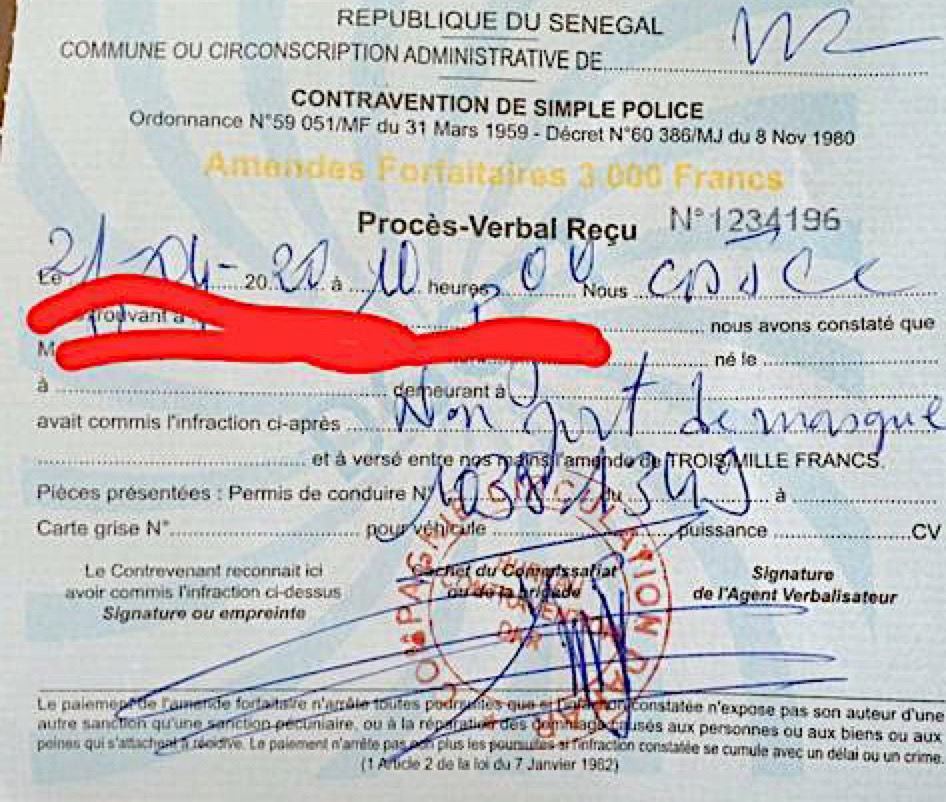 REPUBLIQUE DU SENEGAL
COMMUNE OU CIRCONSCRIPTION ADMINISTRATIVE DE
CONTRAVENTION DE SIMPLE POLICE
Ordonnance N°59 051/MF du 31 Mars 1959 - Décret N°60 386/MJ du 8 Nov 1980
Amendes Forfaitaires 3 000 Francs
Procès-Verbal Reçu N° 1234196
Le 21-04- 20 20 à 10 heures 00 Nous
rouvant à nous avons constaté que
M né le
à demeurant à
avait commis l'infraction ci-après Non port de masque
et à versé entre nos mains l'amende de TROIS MILLE FRANCS.
Pièces présentées : Permis de conduire N° du à
Carte grise N° pour véhicule puissance CV
Le Contrevenant reconnait ici
avoir commis l'infraction ci-dessus
Signature ou empreinte
Cachet du Commissariat
ou de la brigade
Signature
de l'Agent Verbalisateur
COMPAGNIE CIRCULATION DAKAR
Le paiement de l'amende forfaitaire n'arrête toutes poursuites que si l'infraction constatée n'expose pas son auteur d'une
autre sanction qu'une sanction pécuniaire, ou à la réparation des dommages causés aux personnes ou aux biens ou aux
peines qui s'attachent à récidive. Le paiement n'arrête pas non plus les poursuites si l'infraction constatée se cumule avec un délai ou un crime.
(1 Article 2 de la loi du 7 Janvier 1962)